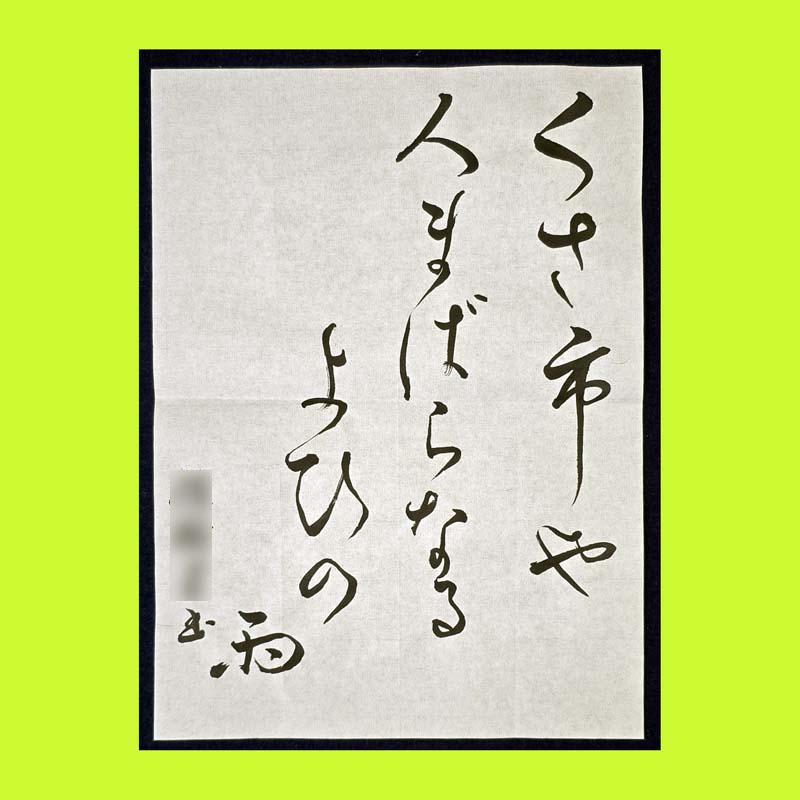 くさ市や
人まばらなる
よひの
雨